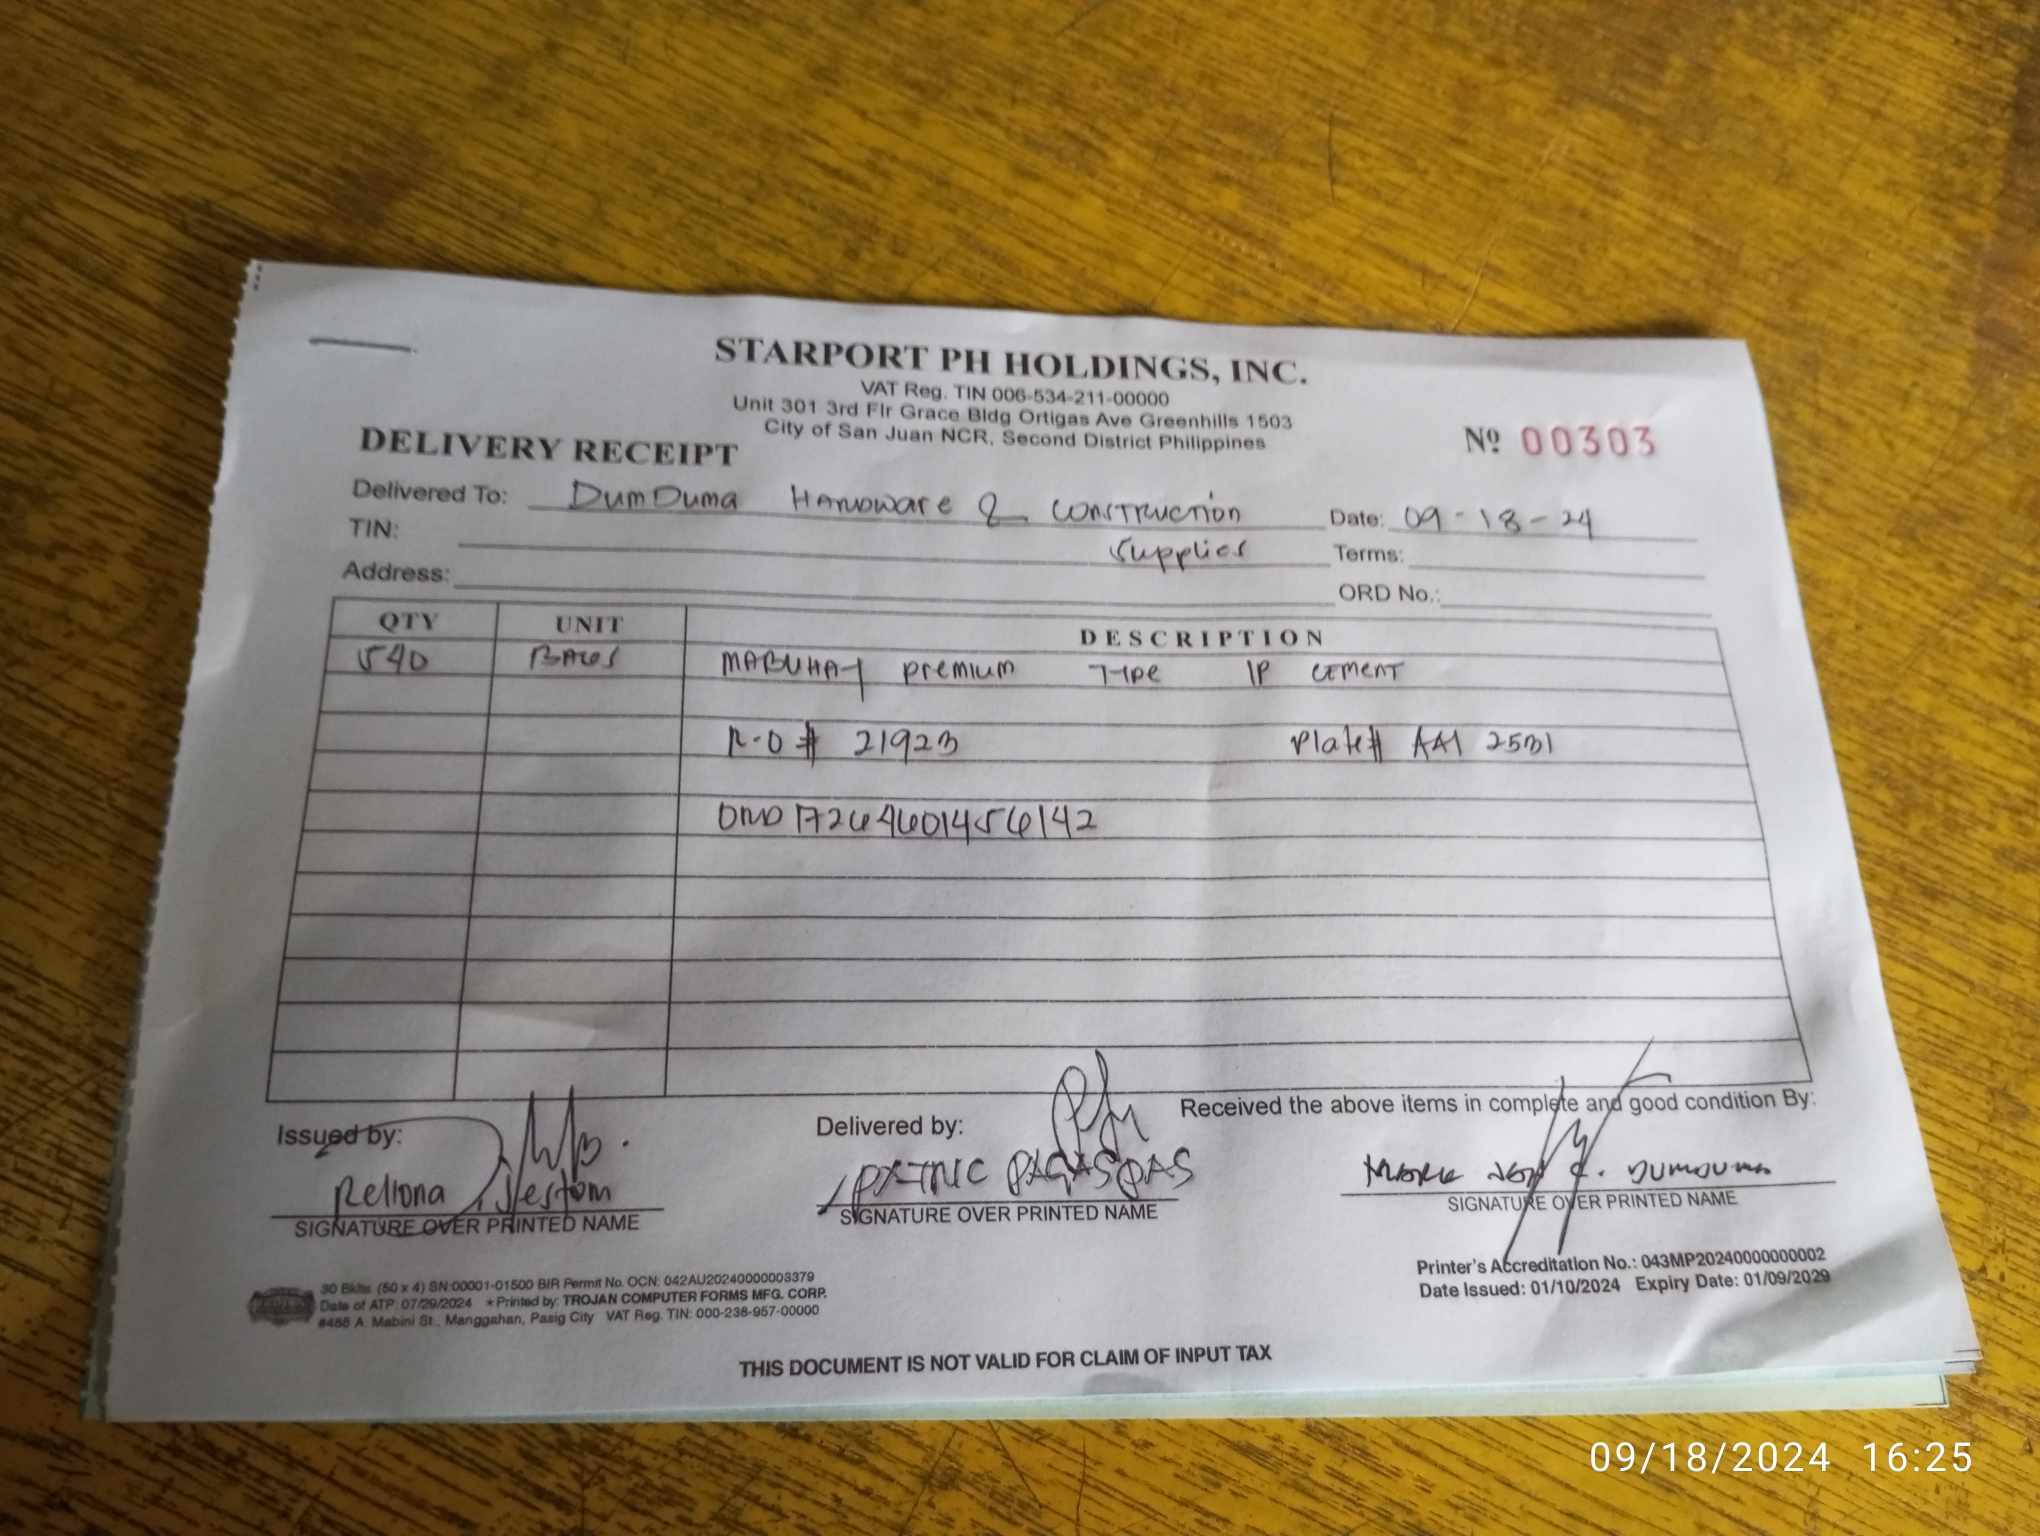 STARPORT PH HOLDINGS, INC.
VAT Reg. TIN 006-534-211-00000
Unit 301 3rd Flr Grace Bldg Ortigas Ave Greenhills 1503
City of San Juan NCR, Second District Philippines
DELIVERY RECEIPT
Nº 00303
Delivered To: DumDuma Hardware & Construction
Date: 09-18-24
TIN: Supplies
Terms:
Address:
ORD No.:
QTY UNIT DESCRIPTION
540 BAGS MABUHAY premium Type 1P CEMENT
R.O # 21923 Plate# AAI 2531
ORD 17264601456142
Issued by:
Delivered by:
Received the above items in complete and good condition By:
Rellona Jestom
PATRIC PAGASPAS
DUMDUMA
SIGNATURE OVER PRINTED NAME
SIGNATURE OVER PRINTED NAME
SIGNATURE OVER PRINTED NAME
30 Bklts (50 x 4) SN:00001-01500 BIR Permit No. OCN: 042AU20240000003379
Date of ATP: 07/29/2024 *Printed by: TROJAN COMPUTER FORMS MFG. CORP.
#488 A. Mabini St., Manggahan, Pasig City VAT Reg. TIN: 000-238-957-00000
Printer's Accreditation No.: 043MP20240000000002
Date Issued: 01/10/2024 Expiry Date: 01/09/2029
THIS DOCUMENT IS NOT VALID FOR CLAIM OF INPUT TAX
09/18/2024 16:25